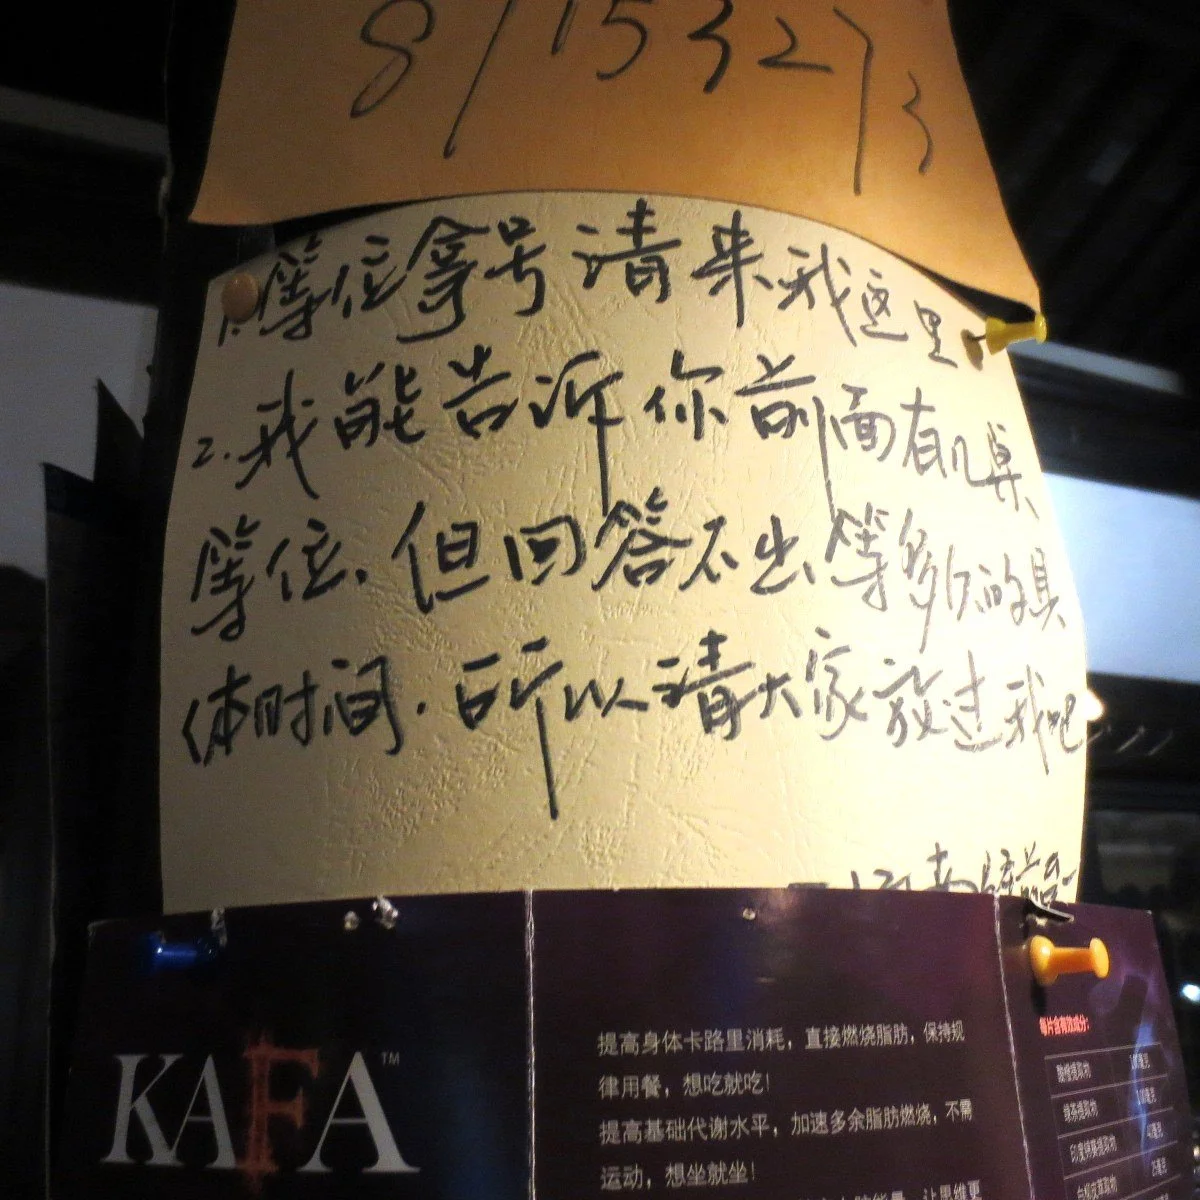 8/15327/3
1.等位拿号请来我这里
2.我能告诉你前面有几桌
等位.但回答不出等多久的具
体时间.所以请大家放过我吧
KAFA™
提高身体卡路里消耗，直接燃烧脂肪，保持规
律用餐，想吃就吃！
提高基础代谢水平，加速多余脂肪燃烧，不需
运动，想坐就坐！
每片含有效成分：
绿茶提取物